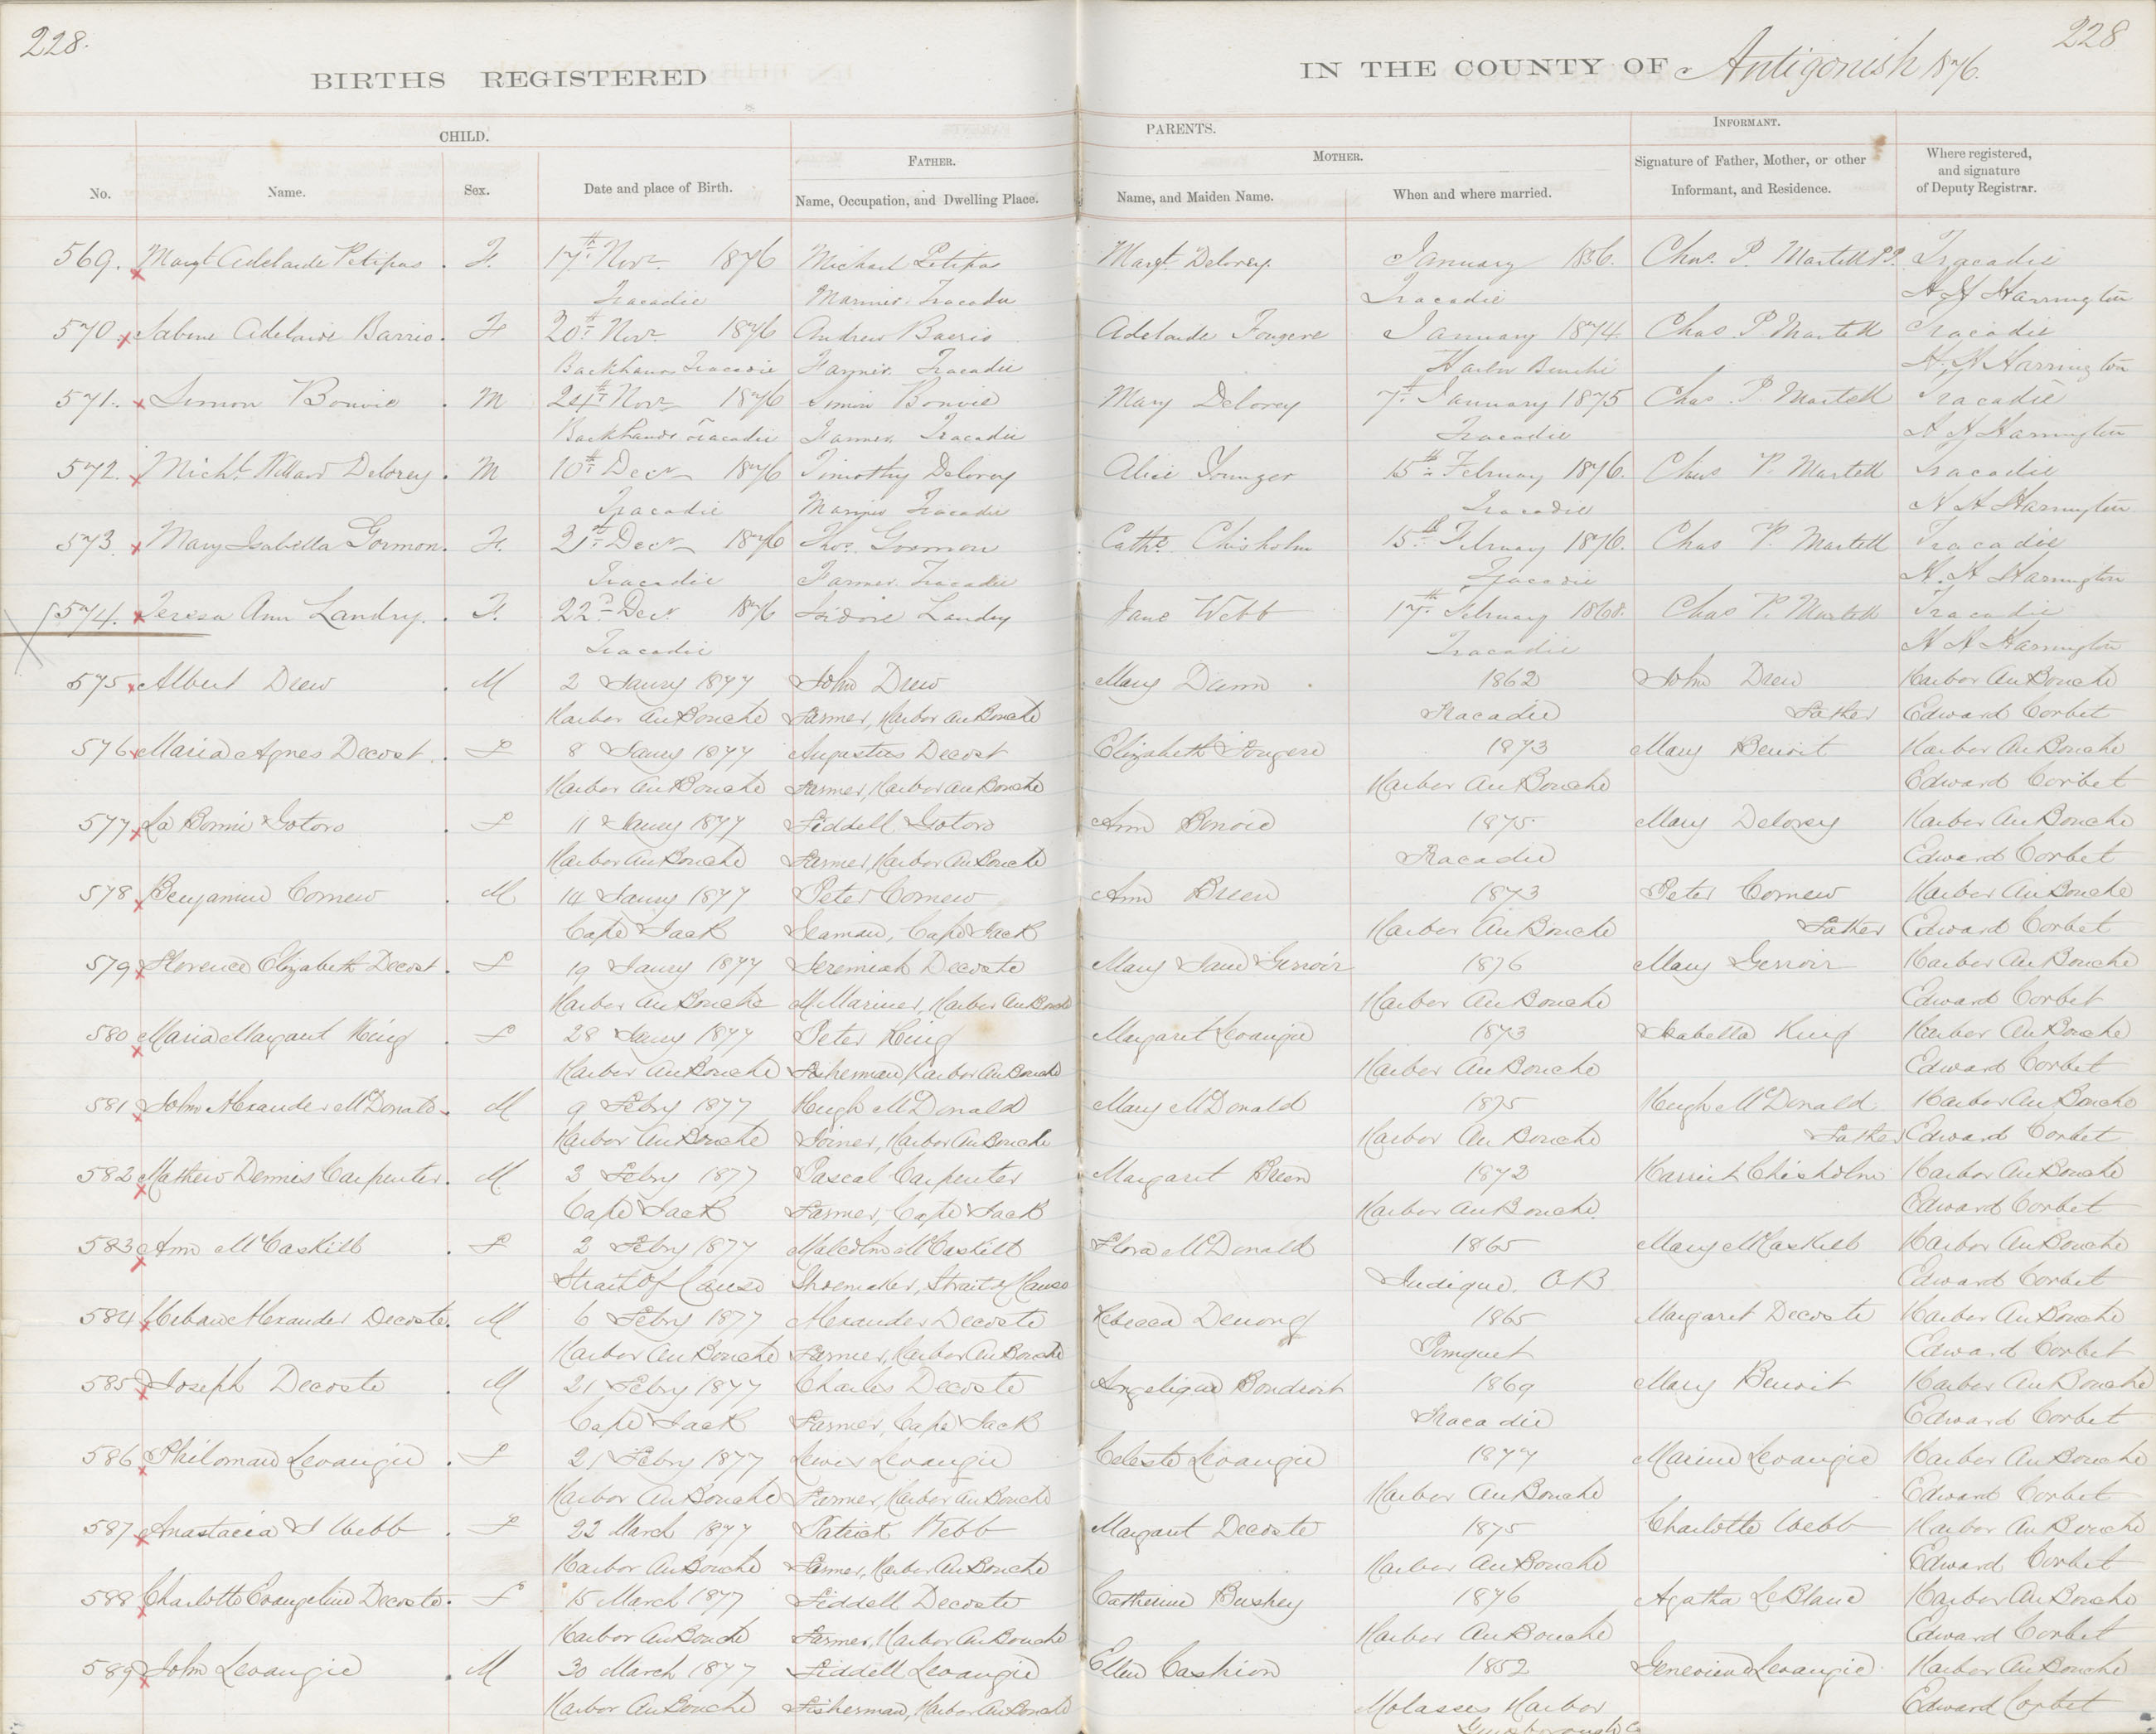 228.
228
BIRTHS REGISTERED
IN THE COUNTY OF Antigonish 1876.
CHILD.
PARENTS.
INFORMANT.
FATHER.
MOTHER.
No.
Name.
Sex.
Date and place of Birth.
Name, Occupation, and Dwelling Place.
Name, and Maiden Name.
When and where married.
Signature of Father, Mother, or other Informant, and Residence.
Where registered, and signature of Deputy Registrar.
569. Margt Adelaide Petipas . F. 17th Novr 1876 Michael Petipas Margt Delorey. January 1856. Chas. P. Martell P.P. Tracadie
Tracadie Mariner Tracadie Tracadie H H Harrington
570. Sabine Adelaide Barrio. F 20th Novr 1876 Andrew Barrio Adelaide Fougere January 1874. Chas P Martell Tracadie
Backlands Tracadie Farmer Tracadie Harbor Bouchi H. H Harrington
571. Simon Bonvie . M 24th Novr 1876 Simon Bonvie Mary Delorey 7th January 1875 Chas. P. Martell Tracadie
Backlands Tracadie Farmer Tracadie Tracadie H H Harrington
572. Michl Willard Delorey . M 10th Decr 1876 Timothy Delorey Alice Younger 15th February 1876. Chas P. Martell Tracadie
Tracadie Mariner Tracadie Tracadie H H Harrington
573. Mary Isabella Gormon. F. 21st Decr 1876 Thos. Gormon Cathe Chisholm 15th February 1876. Chas P. Martell Tracadie
Tracadie Farmer Tracadie Tracadie H. H Harrington
574. Teresa Ann Landry. . F. 22d Decr 1876 Isidore Landry Jane Webb 17th February 1868. Chas P. Martell Tracadie
Tracadie Tracadie H H Harrington
575 Albert Drew . M 2 Jany 1877 John Drew Mary Dunn 1862 John Drew Harbor Au Bouche
Harbor Au Bouche Farmer, Harbor Au Bouche Tracadie Father Edward Corbet
576 Maria Agnes Decost . F 8 Jany 1877 Augustus Decost Elizabeth Fougere 1873 Mary Benoit Harbor Au Bouche
Harbor Au Bouche Farmer, Harbor Au Bouche Harbor Au Bouche Edward Corbet
577 La Bonnie Gotoro . F 11 Jany 1877 Fiddell Gotoro Ann Benoid 1875 Mary Delorey Harbor Au Bouche
Harbor Au Bouche Farmer, Harbor Au Bouche Tracadie Edward Corbet
578 Benjamin Cornew . M 14 Jany 1877 Peter Cornew Ann Breen 1873 Peter Cornew Harbor Au Bouche
Cape Jack Seaman, Cape Jack Harbor Au Bouche Father Edward Corbet
579 Florence Elizabeth Decost . F 19 Jany 1877 Jeremiah Decoste Mary Jane Gerroir 1876 Mary Gerroir Harbor Au Bouche
Harbor Au Bouche M Mariner, Harbor Au Bouche Harbor Au Bouche Edward Corbet
580 Maria Margaret King . F 28 Jany 1877 Peter King Margaret Levangie 1873 Isabella King Harbor Au Bouche
Harbor Au Bouche Fisherman, Harbor Au Bouche Harbor Au Bouche Edward Corbet
581 John Alexander McDonald . M 9 Febry 1877 Hugh McDonald Mary McDonald 1875 Hugh McDonald Harbor Au Bouche
Harbor Au Bouche Joiner, Harbor Au Bouche Harbor Au Bouche Father Edward Corbet
582 Mathew Dennis Carpenter . M 3 Febry 1877 Pascal Carpenter Margaret Breen 1872 Harriet Chisholm Harbor Au Bouche
Cape Jack Farmer, Cape Jack Harbor Au Bouche Edward Corbet
583 Ann McCaskill . F 2 Febry 1877 Malcolm McCaskill Flora McDonald 1865 Mary McCaskill Harbor Au Bouche
Strait Of Canso Shoemaker, Strait of Canso Judique. C.B. Edward Corbet
584 Urban Alexander Decoste. M 6 Febry 1877 Alexander Decoste Rebecca Denong 1865 Margaret Decoste Harbor Au Bouche
Harbor Au Bouche Farmer, Harbor Au Bouche Pomquet Edward Corbet
585 Joseph Decoste . M 21 Febry 1877 Charles Decoste Angelique Boudroit 1869 Mary Benoit Harbor Au Bouche
Cape Jack Farmer, Cape Jack Tracadie Edward Corbet
586 Philoman Levangie . F 21 Febry 1877 Lewis Levangie Celeste Levangie 1877 Levangie Harbor Au Bouche
Harbor Au Bouche Farmer, Harbor Au Bouche Harbor Au Bouche Edward Corbet
587 Anastacia J Webb . F 22 March 1877 Patrick Webb Margaret Decoste 1875 Charlotte Webb Harbor Au Bouche
Harbor Au Bouche Farmer, Harbor Au Bouche Harbor Au Bouche Edward Corbet
588 Charlotte Evangeline Decoste. F 15 March 1877 Fiddell Decoste Catherine Bushey 1876 Agatha LeBlanc Harbor Au Bouche
Harbor Au Bouche Farmer, Harbor Au Bouche Harbor Au Bouche Edward Corbet
589 John Levangie . M 30 March 1877 Fiddell Levangie Ellen Cashion 1852 Genevieve Levangie Harbor Au Bouche
Harbor Au Bouche Fisherman, Harbor Au Bouche Molasses Harbor Edward Corbet
Guysborough Co